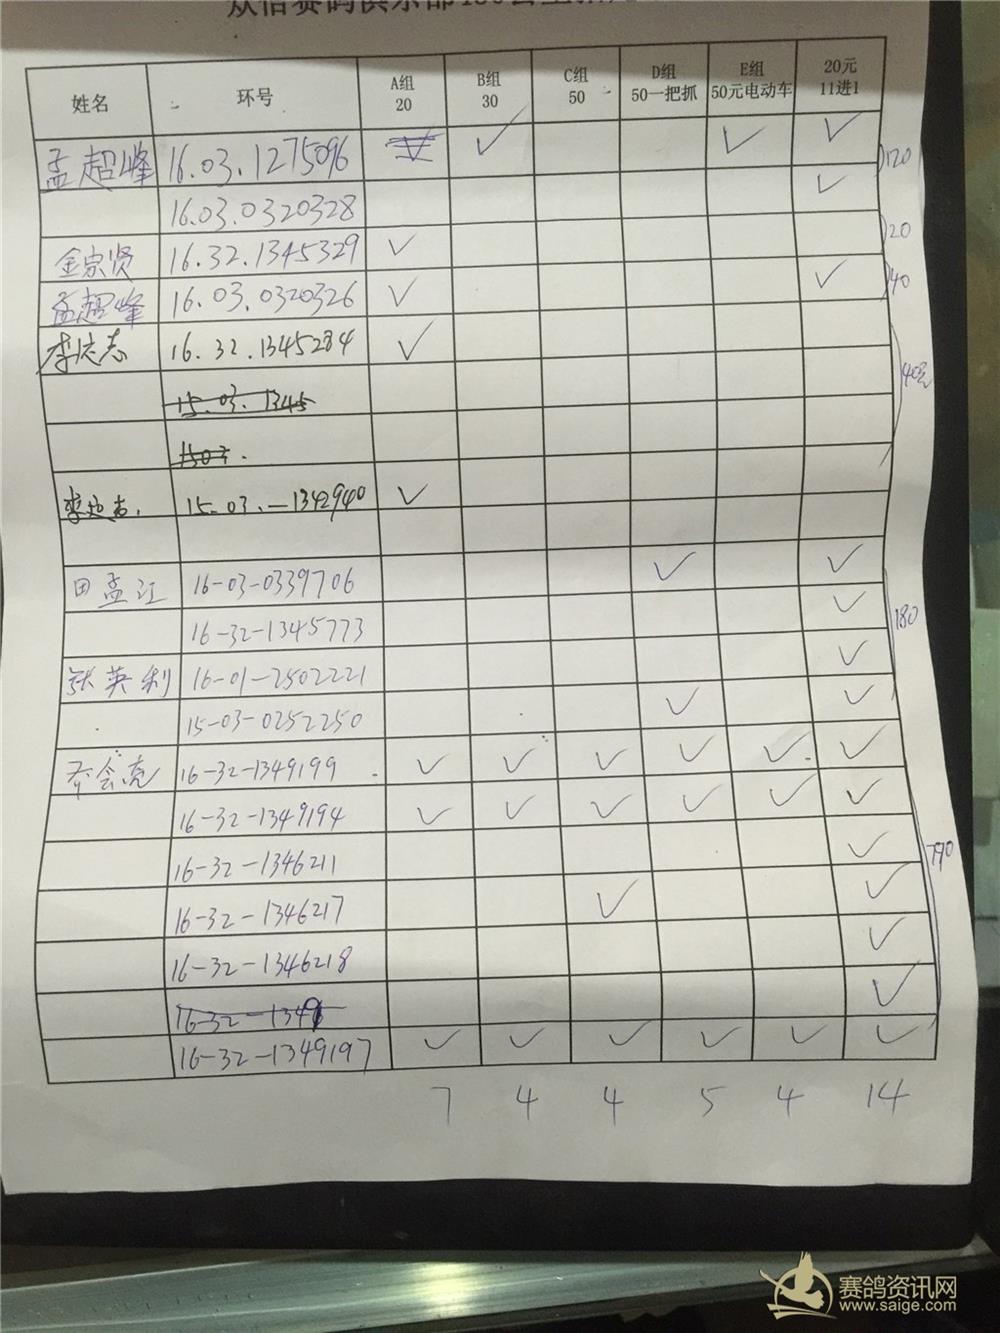 姓名 环号 A组 20 B组 30 C组 50 D组 50一把抓 E组 50元电动车 20元 11进1
孟超峰 16.03.1275096 ✓ ✓ ✓ 120
16.03.0320328 ✓
金宗贤 16.32.1345329 ✓ 20
孟超峰 16.03.0320326 ✓ ✓ 40
李志 16.32.1345284 ✓ 40元
15.03.1345
1503.
李志 15-03.—1342940 ✓
田孟江 16-03-0339706 ✓ ✓
16-32-1345773 ✓ 180
张英利 16-01-2502221 ✓
15-03-0252250 ✓ ✓
乔会亮 16-32-1349199 ✓ ✓ ✓ ✓ ✓ ✓
16-32-1349194 ✓ ✓ ✓ ✓ ✓ ✓
16-32-1346211 ✓ 790
16-32-1346217 ✓ ✓
16-32-1346218 ✓
16-32-1349 ✓
16-32-1349197 ✓ ✓ ✓ ✓ ✓ ✓
7 4 4 5 4 14
赛鸽资讯网
www.saige.com